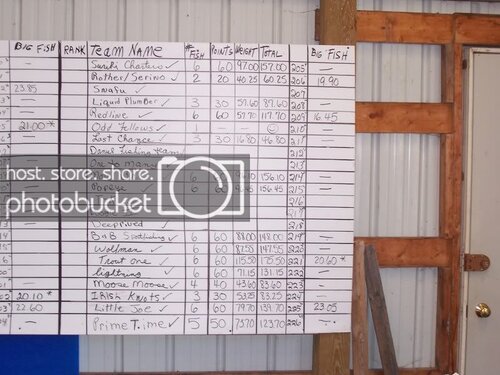 BIG FISH RANK TEAM NAME # FISH POINTS WEIGHT TOTAL BIG FISH
— Sunk Charters ✓ 6 60 97.00 157.00 205 —
— Rother/Serino ✓ 2 20 40.25 60.25 206 19.90
23.85 Snafu ✓ 207
— Liquid Plumber ✓ 3 30 57.60 87.60 208 —
— Redline ✓ 6 60 57.70 117.70 209 16.45
21.00* Odd Fellows ✓ 1 — 210 —
— Last Chance ✓ 3 30 16.80 46.80 211 —
Fishing Team 212
213
6 156.10 214 —
Popeye 6 60 96.45 156.45 215 —
216
217
Deeprived 218
— B&B ✓ 6 60 88.00 148.00 219 —
— Wolfman ✓ 6 60 87.55 147.55 220 —
— Trout One ✓ 6 60 115.50 175.50 221 20.60*
— lightning ✓ 6 60 71.15 131.15 222 —
— Moore Moore ✓ 4 40 43.60 83.60 223 —
20.10* Irish Knots ✓ 3 30 53.25 83.25 224 —
22.60 Little Joe ✓ 6 60 79.70 139.70 225 23.05
— Prime Time ✓ 5 50 73.70 123.70 226 —
host. store. share.
photobucket